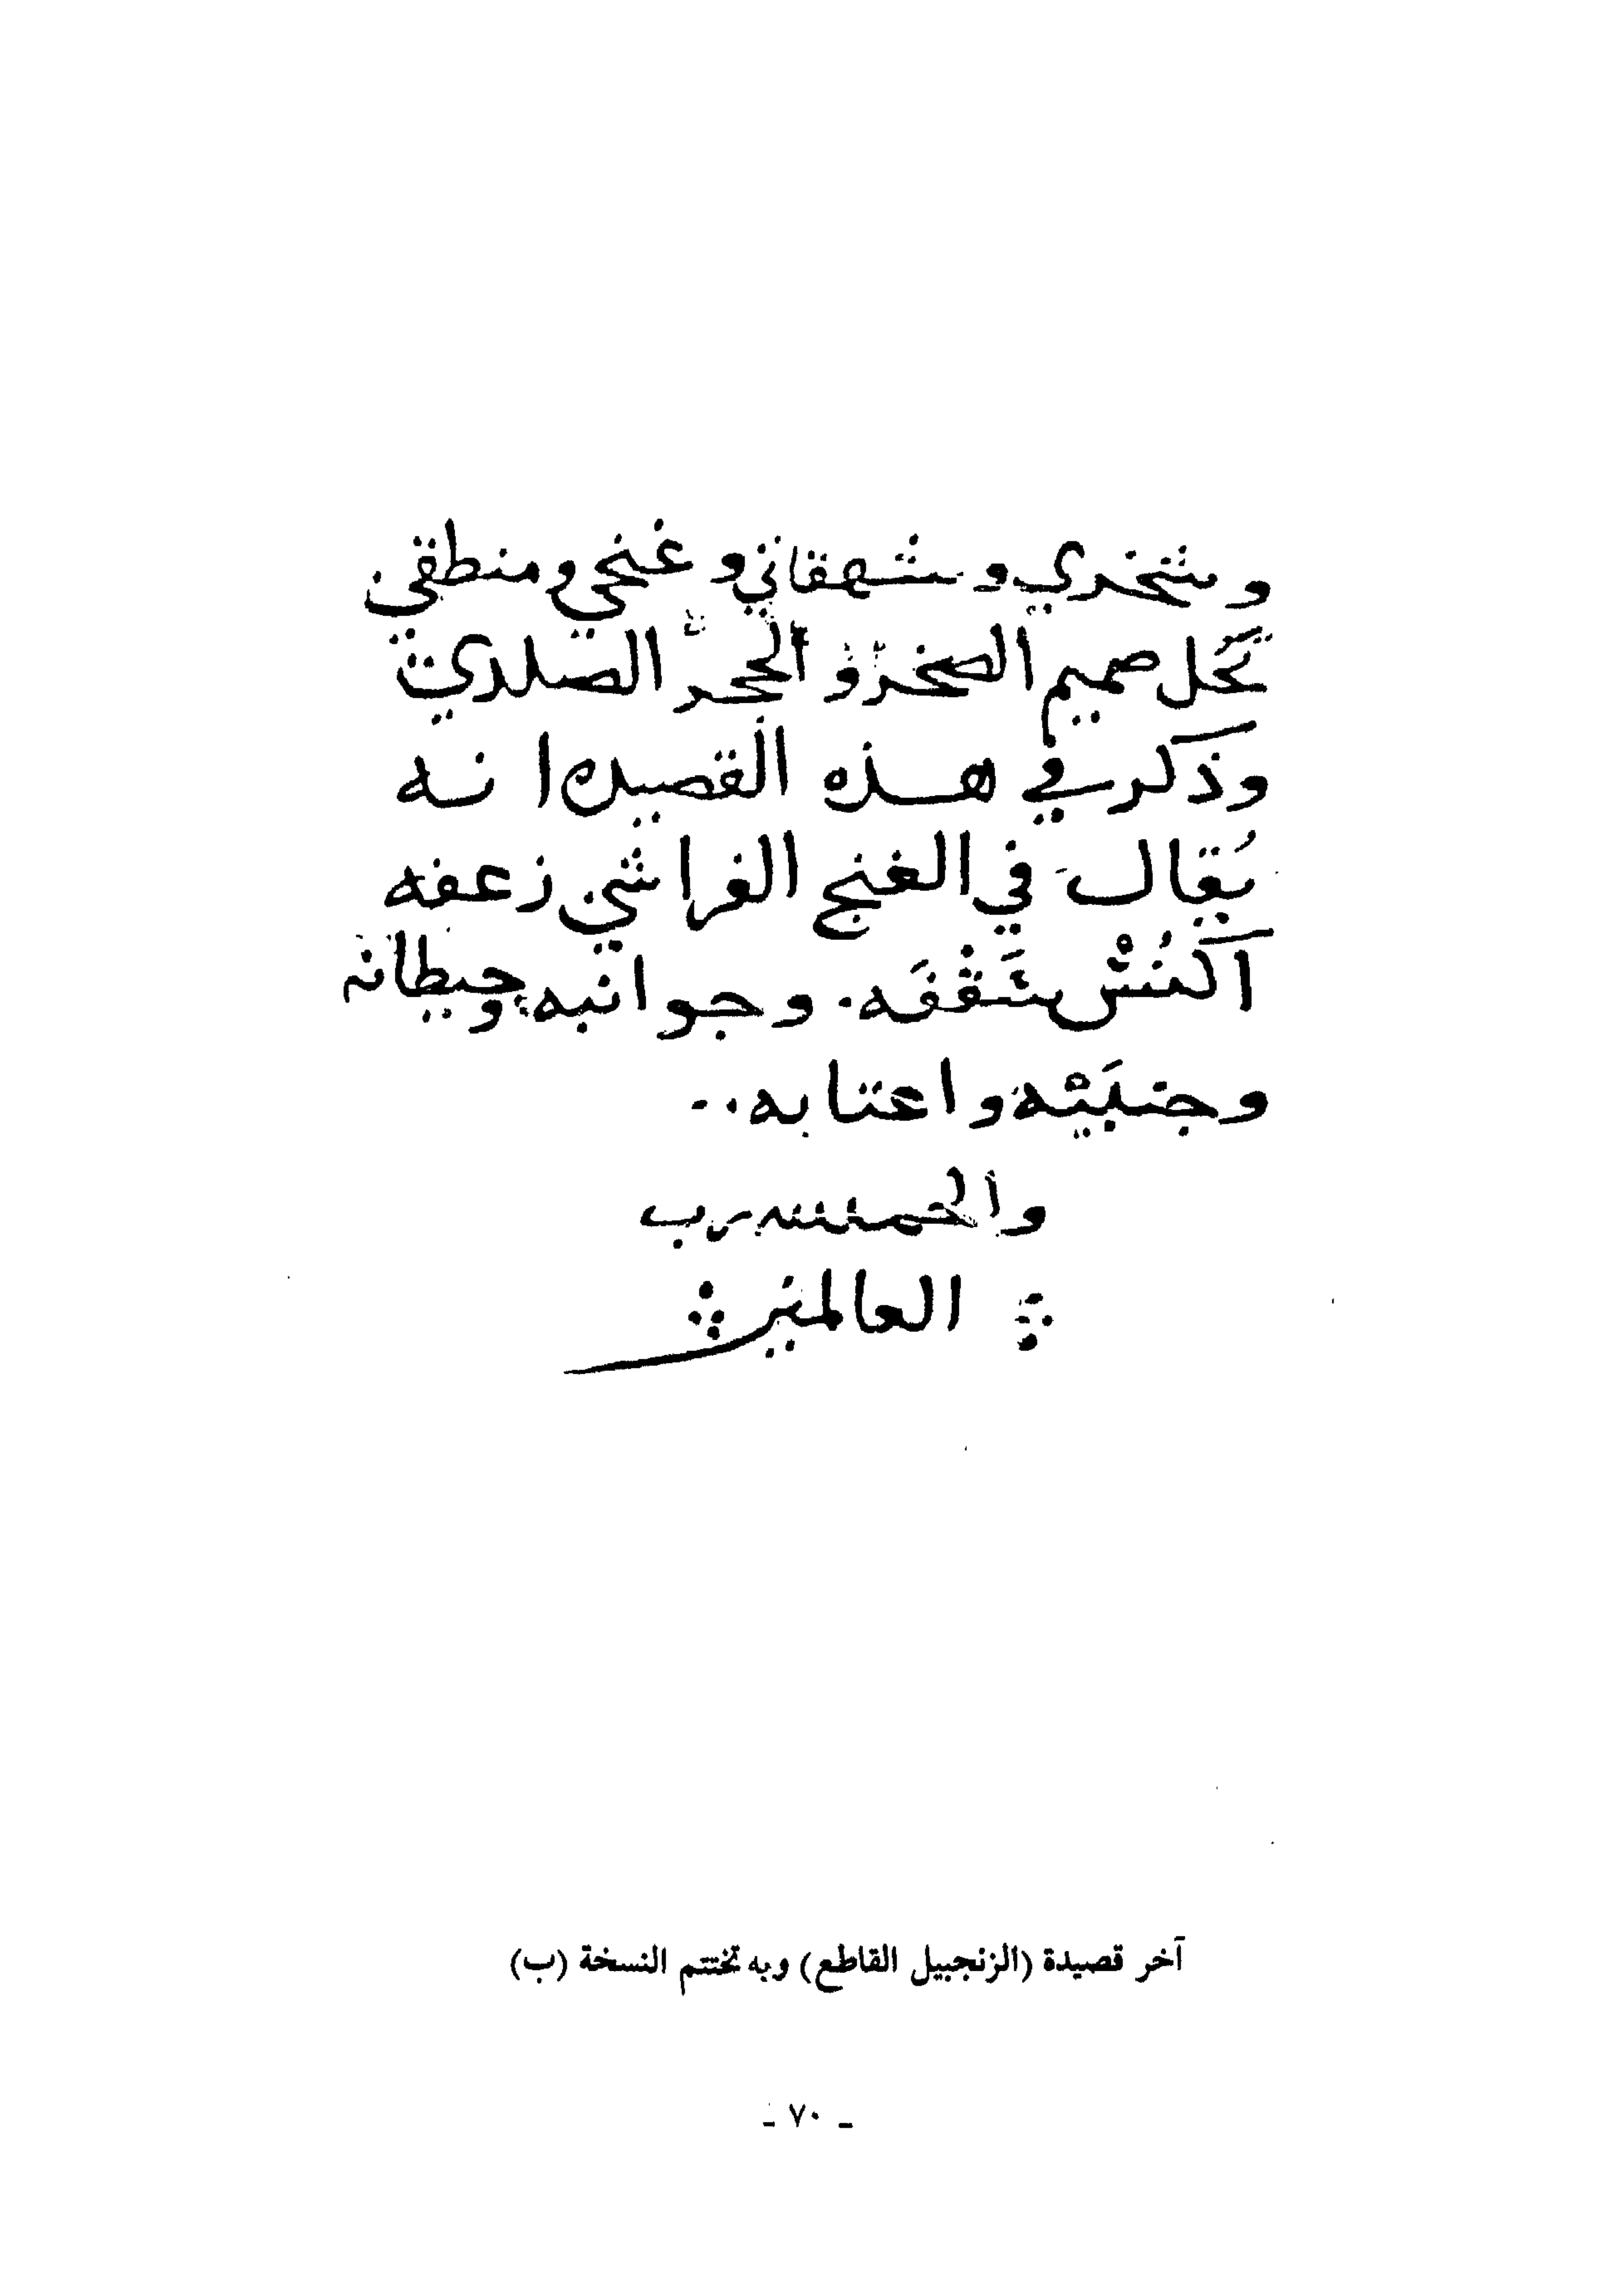 وشخري وشهقاتي وغنجي ومنطقي
تحل صميم الصخر والحجر الصلدي
وذكر في هذه القصيده انه
يقال في الغنج الفراشي زعفه
اكنس سقفه. وجوانبه وحيطانه
وجنبيه واعتابه..
والحمد لله رب
العالمين
آخر قصيدة (الزنجبيل القاطع) وبه تختتم النسخة (ب)
ـ ٧٠ ـ